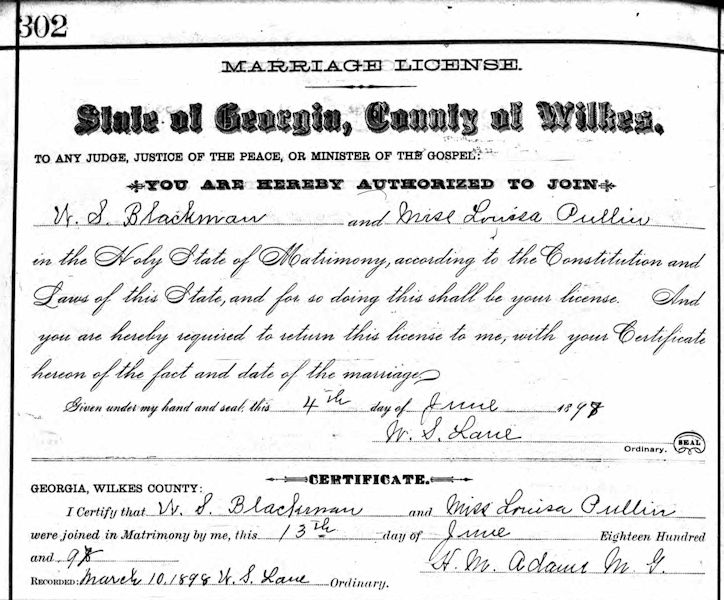 302
MARRIAGE LICENSE.
State of Georgia, County of Wilkes.
TO ANY JUDGE, JUSTICE OF THE PEACE, OR MINISTER OF THE GOSPEL:
YOU ARE HEREBY AUTHORIZED TO JOIN
W. S. Blackman and Miss Louisa Pullin
in the Holy State of Matrimony, according to the Constitution and
Laws of this State, and for so doing this shall be your license. And
you are hereby required to return this license to me, with your Certificate
hereon of the fact and date of the marriage
Given under my hand and seal, this 4th day of June
W. S. Lane
Ordinary. SEAL
CERTIFICATE.
GEORGIA, WILKES COUNTY:
I Certify that W. S. Blackman and Miss Louisa Pullin
were joined in Matrimony by me, this 13th day of June Eighteen Hundred
and
H. M. Adams M. G.
RECORDED: March 10, 1898 W. S. Lane Ordinary.